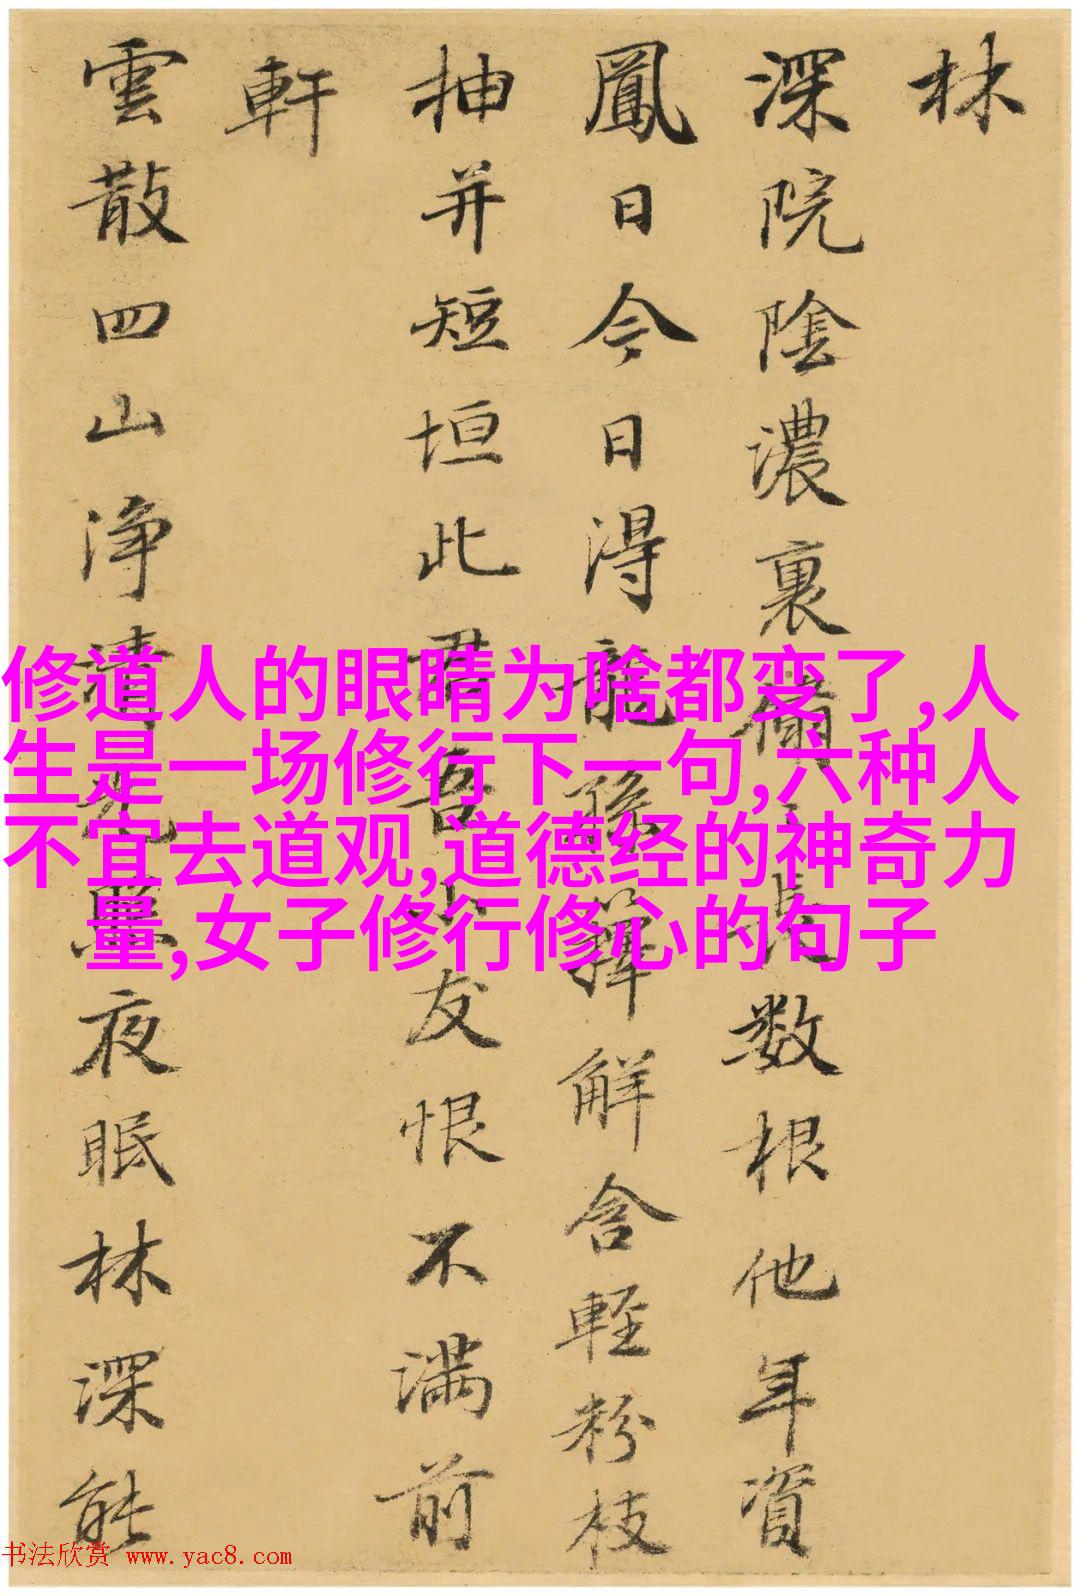 林
深院陰濃裏脩〻長数根他年資
鳳日今日得龍孫籜解含輕粉枝
抽并短垣此君吾益友恨不満前
軒
雲散四山净清光墨夜眠林深能
修道人的眼睛为啥都变了,人
生是一场修行下一句,六种人
不宜去道观,道德经的神奇力
量,女子修行修心的句子
书法欣赏 www.yac8.com